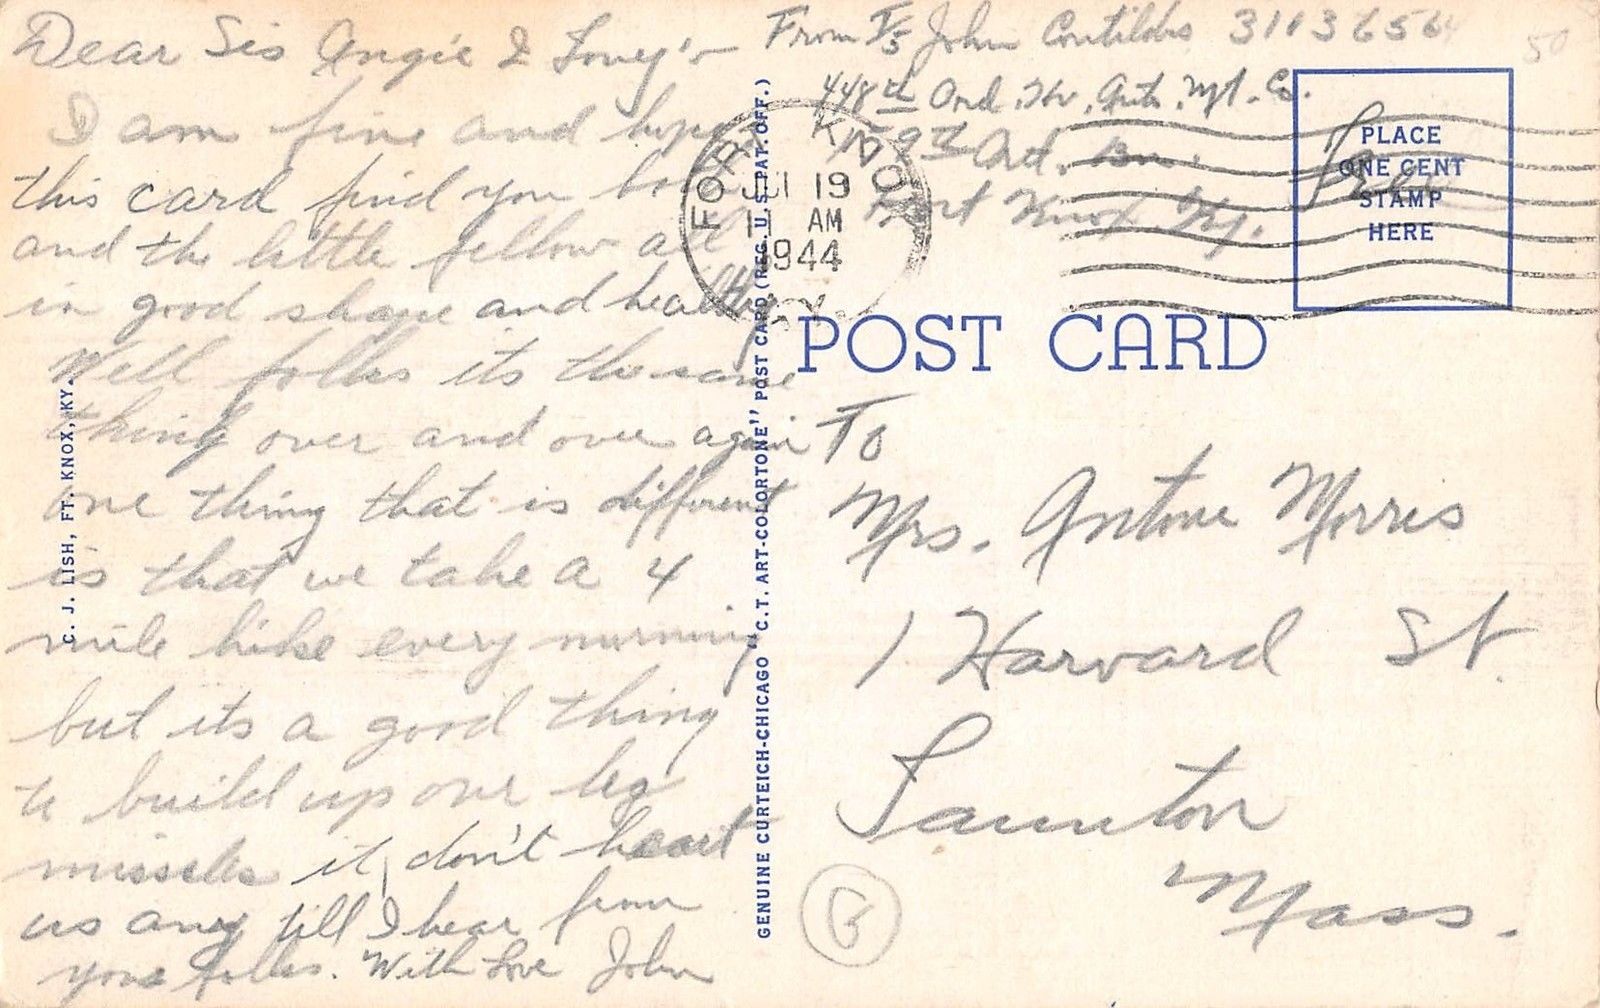 Dear Sis Angie & Toney'r
I am fine and hope
this card find you both
and the little fellow all
in good shape and healthy
Well folks its the same
thing over and over again
one thing that is different
is that we take a 4
mile hike every morning
but its a good thing
to build up our leg
missels it don't heart
us any till I hear from
you folks. With Love John
C. J. LISH, FT. KNOX, KY.
GENUINE CURTEICH-CHICAGO "C.T. ART-COLORTONE" POST CARD (REG. U.S. PAT. OFF.)
From T/5 John 3113656
448th Ord. Hv. Aut. Mt. Co.
Ord. Bn.
Fort Knox Ky.
FORT KNOX
JUL 19
11 AM
1944
KY
Free
PLACE
ONE CENT
STAMP
HERE
50
POST CARD
To
Mrs. Antone Morris
1 Harvard St.
Taunton
Mass.